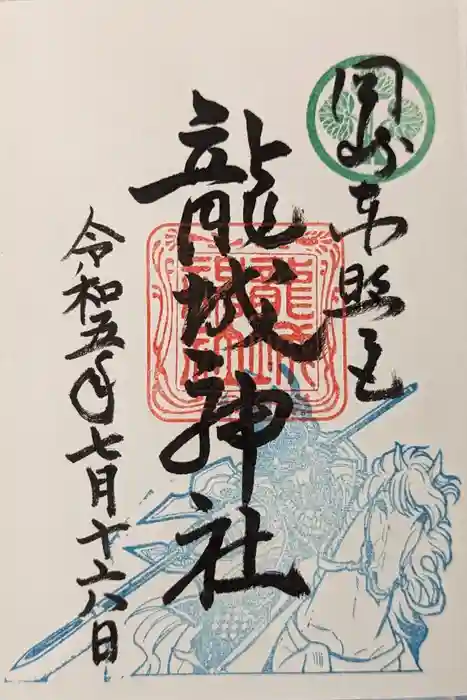 岡崎東照宮
龍城神社
令和五年七月十六日